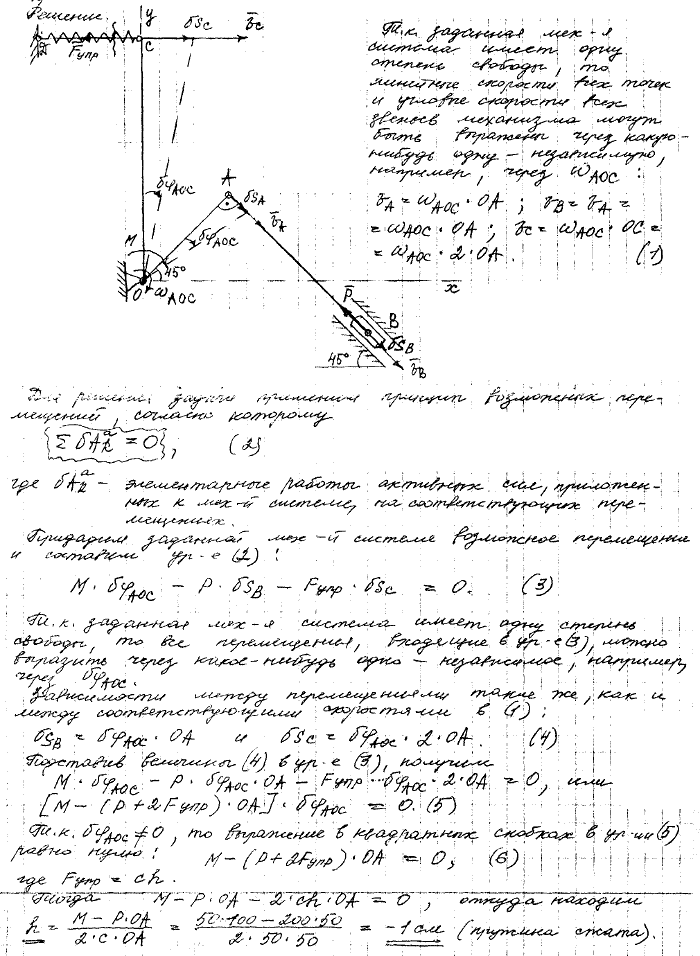 Решение.
y
δS_C
V̄_C
D
F̄упр
C
δφ_AOC
A
δS_A
V̄_A
δφ_AOC
M
45°
O
ω_AOC
x
P̄
B
δS_B
V̄_B
45°
Т.к. заданная мех-я
система имеет одну
степень свободы, то
линейные скорости всех точек
и угловые скорости всех
звеньев механизма могут
быть выражены через какую-
нибудь одну – независимую,
например, через ω_AOC :
V_A = ω_AOC · OA ; V_B = V_A =
= ω_AOC · OA ; V_C = ω_AOC · OC =
= ω_AOC · 2 · OA . (1)
Для решения задачи применим принцип возможных пере-
мещений, согласно которому
Σ δA_k^a = 0 , (2)
где δA_k^a – элементарные работы активных сил, приложен-
ных к мех-й системе, на соответствующих пере-
мещениях.
Придадим заданной мех-й системе возможное перемещение
и составим ур-е (2) :
M · δφ_AOC – P · δS_B – Fупр · δS_C = 0. (3)
Т.к. заданная мех-я система имеет одну степень
свободы, то все перемещения, входящие в ур-е (3), можно
выразить через какое-нибудь одно – независимое, например,
через δφ_AOC.
Зависимости между перемещениями такие же, как и
между соответствующими скоростями в (1) :
δS_B = δφ_AOC · OA и δS_C = δφ_AOC · 2 · OA . (4)
Подставив величины (4) в ур-е (3), получим
M · δφ_AOC – P · δφ_AOC · OA – Fупр · δφ_AOC · 2 · OA = 0, или
[M – (P + 2Fупр) · OA] · δφ_AOC = 0. (5)
Т.к. δφ_AOC ≠ 0, то выражение в квадратных скобках в ур-ии (5)
равно нулю: M – (P + 2Fупр) · OA = 0, (6)
где Fупр = ch.
Тогда M – P · OA – 2 · ch · OA = 0 , откуда находим
h = (M – P · OA) / (2 · c · OA) = (50 · 100 – 200 · 50) / (2 · 50 · 50) = –1 см (пружина сжата).